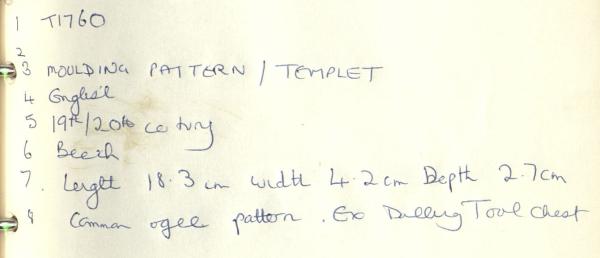 1 T1760
2
3 MOULDING PATTERN / TEMPLET
4 English
5 19th/20th century
6 Beech
7. Length 18.3 cm Width 4.2cm Depth 2.7cm
8 Common ogee pattern. Ex Tool Chest